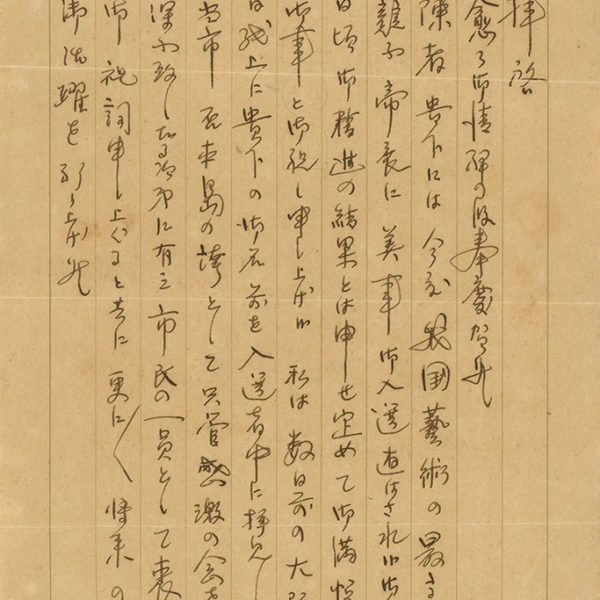 拝啓
愈々御情祥の段奉慶賀候
陳者 貴下には 今度 我国藝術の最高
難ふ帝展に 美事 御入選遊ばされ候御
日頃御精進の結果とは申せ定めて御満悦
御事と御祝し申し上げ候 私は数日前の大阪
日紙上に貴下の御名前を入選者中に拝見し
当市 否本島の誇として只管感激の念を
深ふ致し居る次第に有之 市民の一員として衷
御祝詞申し上ぐると共に 更に/\ 将来の
御活躍を祈り上げ候